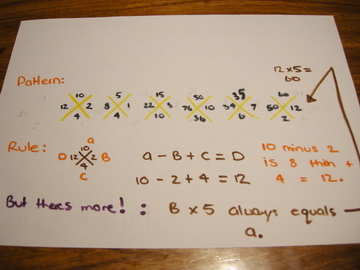 12 x 5 =
60
Pattern:
10 5 15 50 35 60
12 2 8 1 22 3 76 10 34 7 50 12
4 4 10 36 6 2
Rule:
a
10
D 12 2 B
4
C
a - B + C = D
10 - 2 + 4 = 12
10 minus 2
is 8 then +
4 = 12.
But theres more! : B x 5 always equals
a.